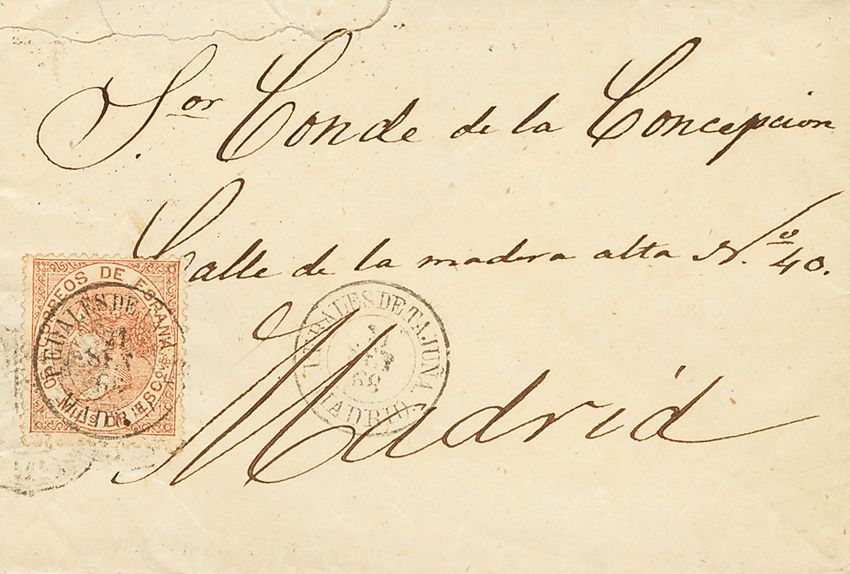 Sor Conde de la Concepcion
Calle de la madera alta No 40.
Madrid
CORREOS DE ESPAÑA
PERALES DE
21
SET
MADR
PERALES DE TAJUÑA
SET
MADRID